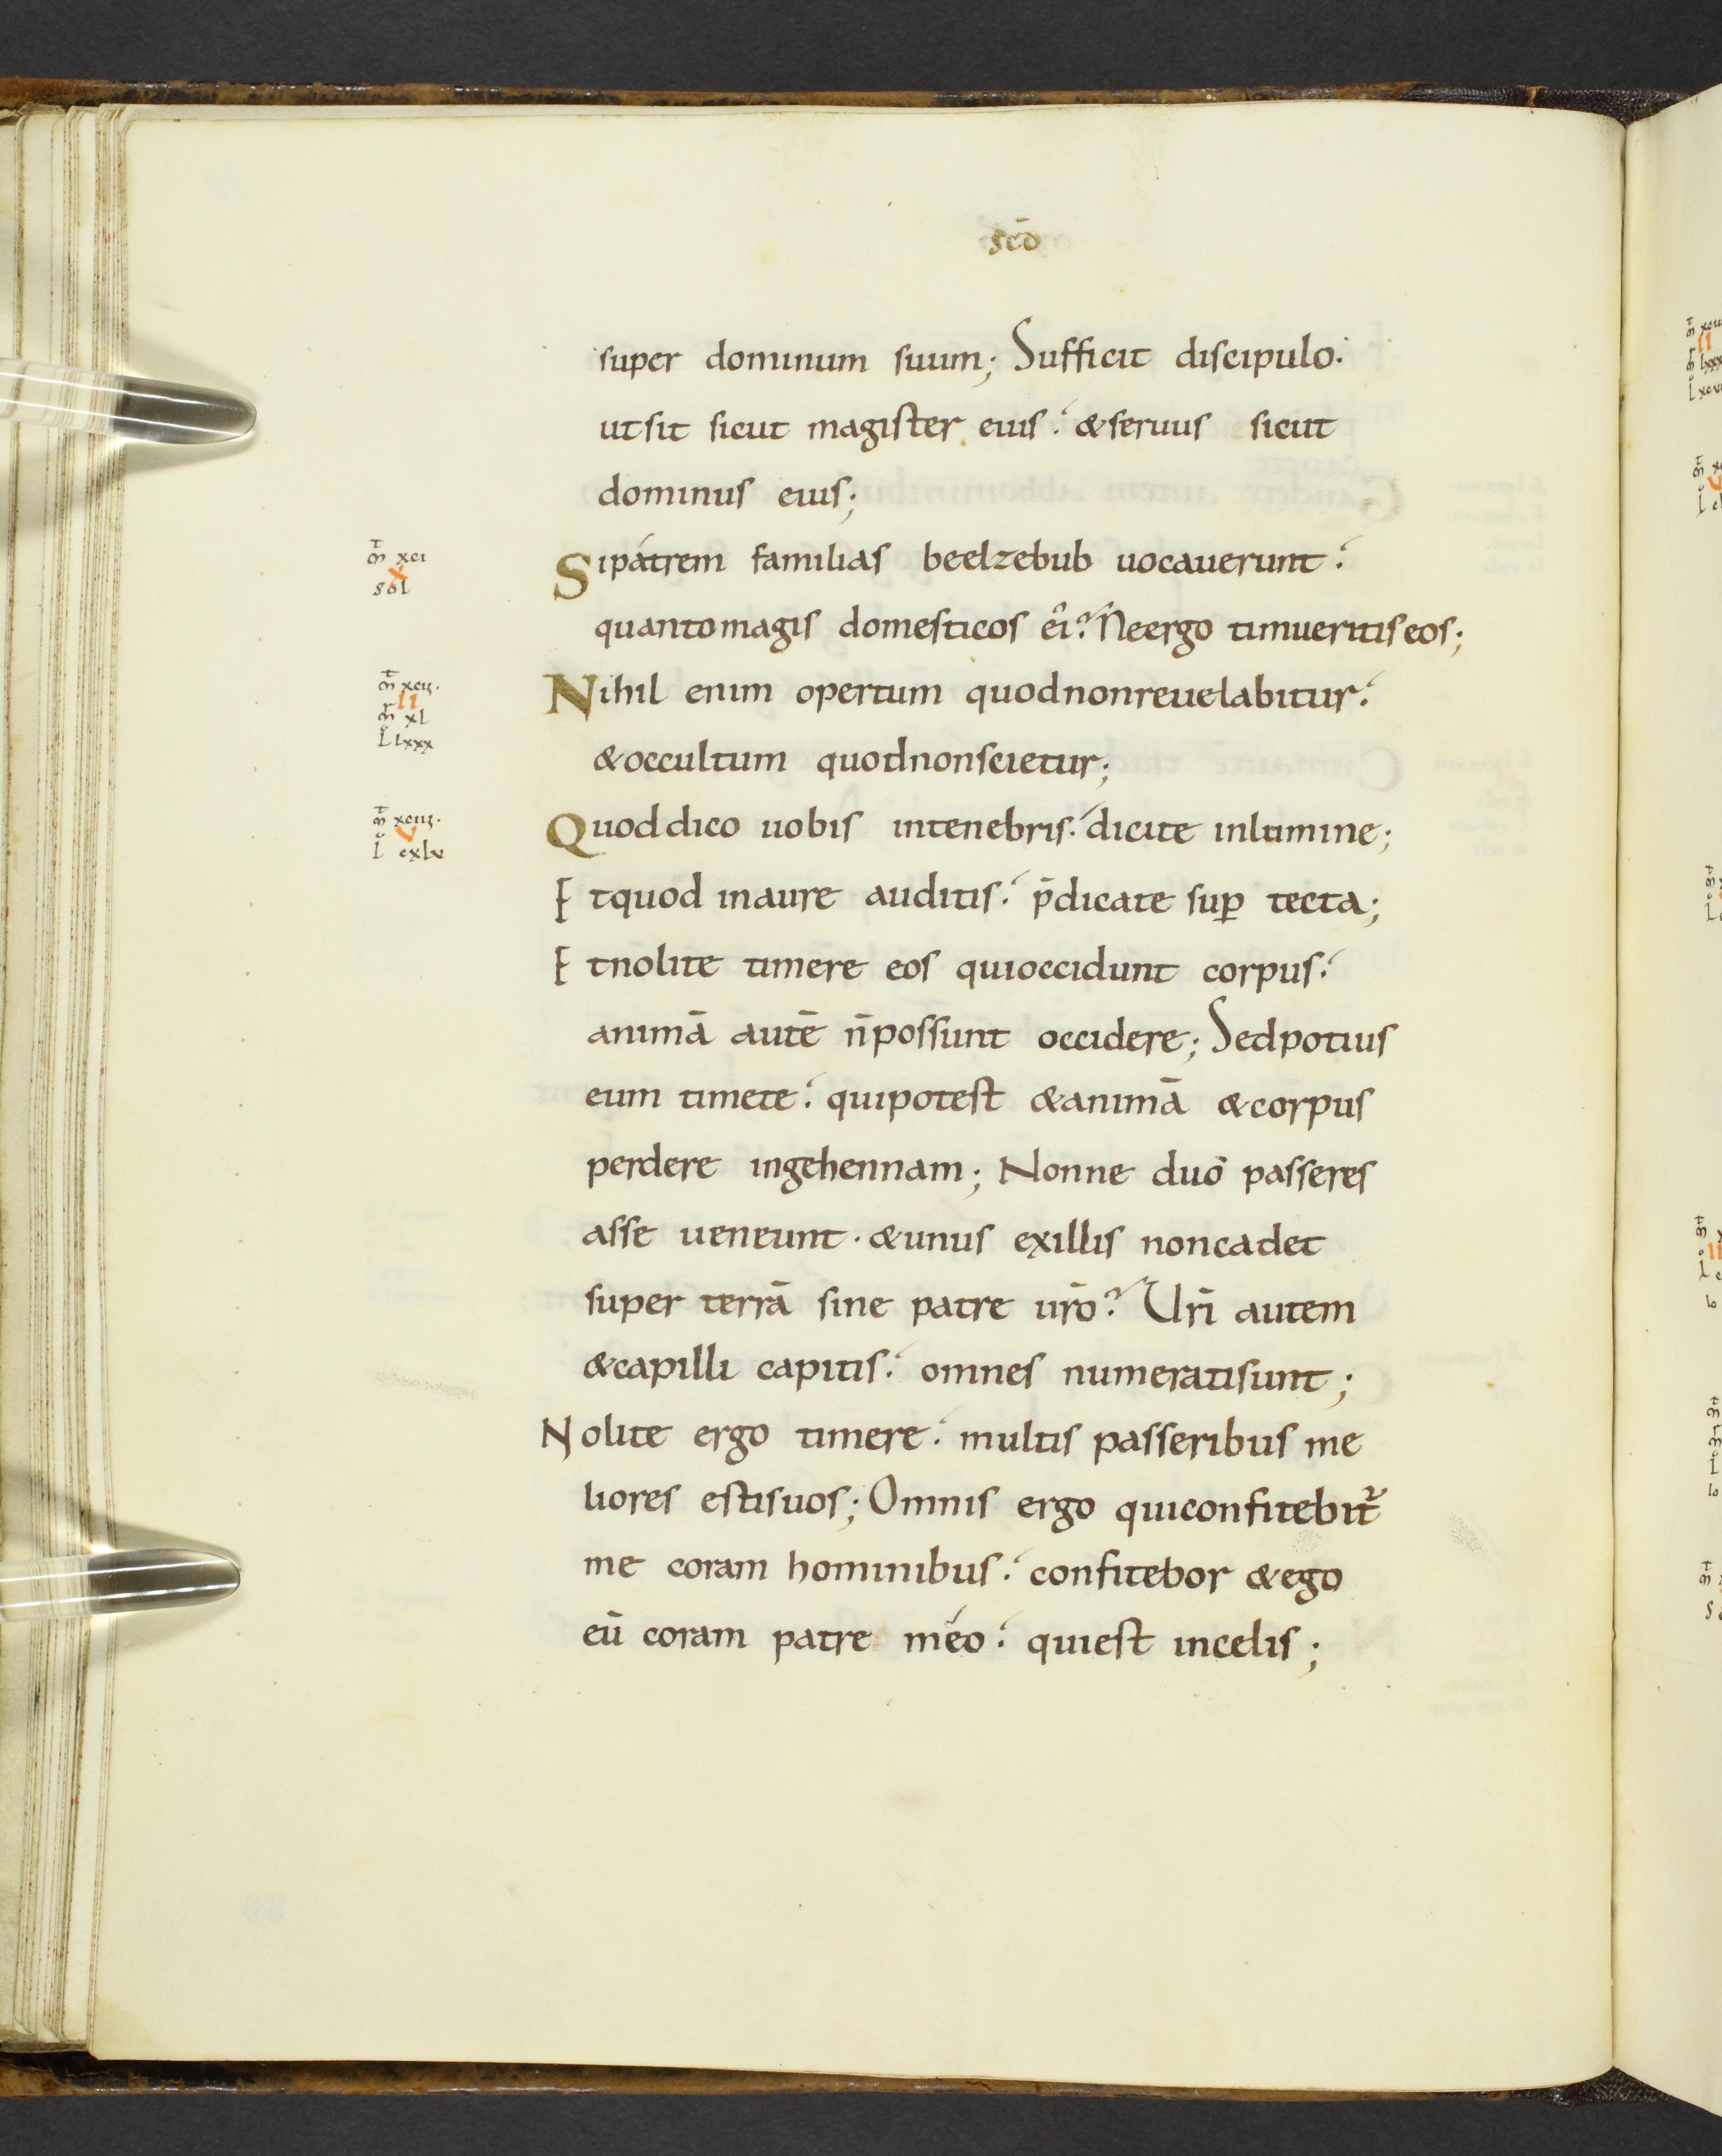 scd̄
super dominum suum; Sufficit discipulo.
ut sit sicut magister eius. & seruus sicut
dominus eius;
m̄ xci
X
sol
Si pátrem familias beelzebub uocauerunt.
quanto magis domesticos ei? Ne ergo timueritis eos;
m̄ xcii.
II
m̄ xl
L lxxx
Nihil enim opertum quod non reuelabitur.
& occultum quod non scietur;
m̄ xciii.
V
L cxlv
Quod dico uobis in tenebris. dicite in lumine;
Et quod in aure auditis. p̄dicate sup̱ tecta;
Et nolite timere eos qui occidunt corpus.
animā autē n̄ possunt occidere; Sed potius
eum timete. qui potest & animā & corpus
perdere in gehennam; Nonne duo passeres
asse ueneunt. & unus ex illis non cadet
super terrā sine patre ur̄o? Ur̄i autem
& capilli capitis. omnes numerati sunt;
Nolite ergo timere. multis passeribus me
liores estis uos; Omnis ergo qui confitebit᷑
me coram hominibus. confitebor & ego
eū coram patre méo. qui est in celis;